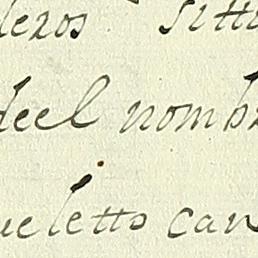 lezos sitti
deel nombr
ueletto can